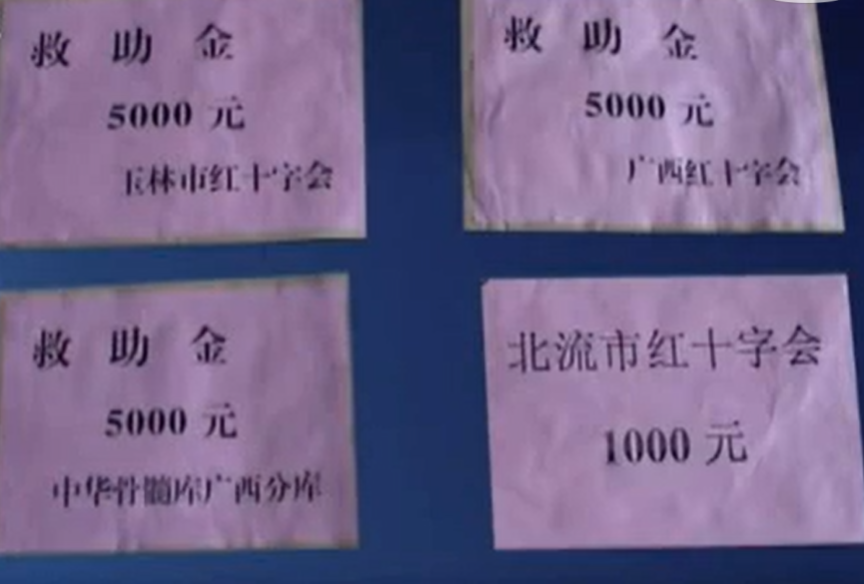 救助金
5000 元
玉林市红十字会
救助金
5000 元
广西红十字会
救助金
5000 元
中华骨髓库广西分库
北流市红十字会
1000 元